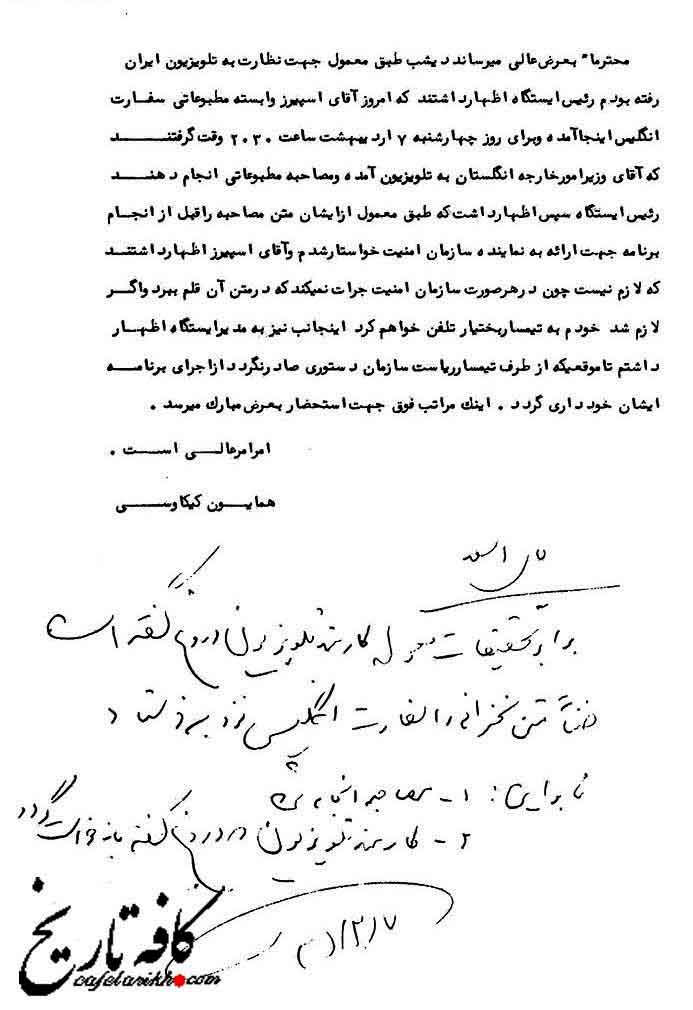 محترما" بعرض عالی میرساند دیشب طبق معمول جهت نظارت به تلویزیون ایران
رفته بودم رئیس ایستگاه اظهار داشتند که امروز آقای اسپیرز وابسته مطبوعاتی سفارت
انگلیس اینجا آمده و برای روز چهارشنبه ۷ اردیبهشت ساعت ۲۰۳۰ وقت گرفتند
که آقای وزیر امور خارجه انگلستان به تلویزیون آمده و مصاحبه مطبوعاتی انجام دهند
رئیس ایستگاه سپس اظهار داشت که طبق معمول از ایشان متن مصاحبه را قبل از انجام
برنامه جهت ارائه به نماینده سازمان امنیت خواستار شدم و آقای اسپیرز اظهار داشتند
که لازم نیست چون در هر صورت سازمان امنیت جرات نمیکند که در متن آن قلم ببرد و اگر
لازم شد خودم به تیمسار بختیار تلفن خواهم کرد اینجانب نیز به مدیر ایستگاه اظهار
داشتم تا موقعیکه از طرف تیمسار ریاست سازمان دستوری صادر نگردد از اجرای برنامه
ایشان خودداری گردد . اینک مراتب فوق جهت استحضار بعرض مبارک میرسد .
امر امر عالی است .
همایون کیکاوسی
برابر تحقیقات کارمند تلویزیون دروغ گفته است
ضمناً متن سخنرانی را سفارت انگلیس فرستاد
بنابراین: ۱- مصاحبه انجام شد
۲- کارمند تلویزیون که دروغ گفته بازخواست گردد
کافه تاریخ
cafetarikh.com